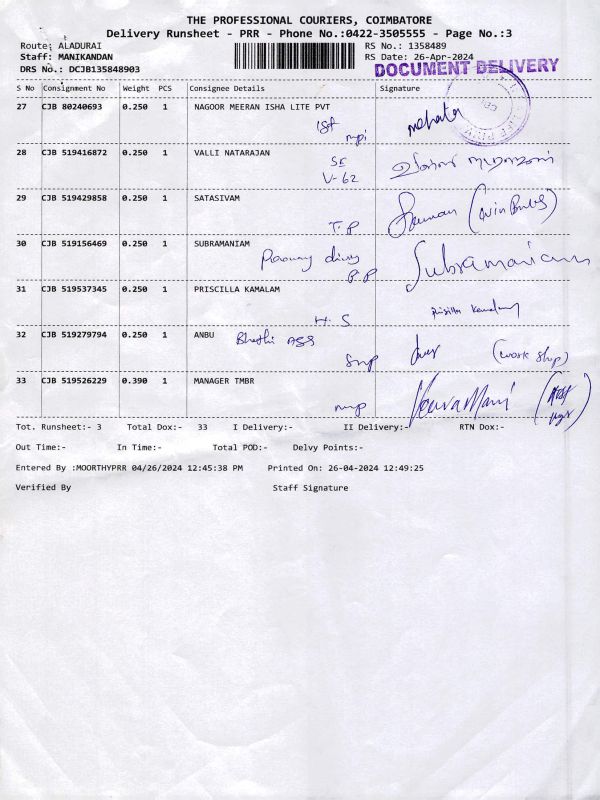 THE PROFESSIONAL COURIERS, COIMBATORE
Delivery Runsheet - PRR - Phone No.:0422-3505555 - Page No.:3
Route: ALADURAI RS No.: 1358489
Staff: MANIKANDAN RS Date: 26-Apr-2024
DRS No.: DCJB135848903 DOCUMENT DELIVERY
S No Consignment No Weight PCS Consignee Details Signature
27 CJB 80240693 0.250 1 NAGOOR MEERAN ISHA LITE PVT
28 CJB 519416872 0.250 1 VALLI NATARAJAN
V-62
29 CJB 519429858 0.250 1 SATASIVAM
T.P
30 CJB 519156469 0.250 1 SUBRAMANIAM Subramanian
P.P
31 CJB 519537345 0.250 1 PRISCILLA KAMALAM Priscilla Kamalam
H.S
32 CJB 519279794 0.250 1 ANBU (work shop)
33 CJB 519526229 0.390 1 MANAGER TMBR
Tot. Runsheet:- 3 Total Dox:- 33 I Delivery:- II Delivery:- RTN Dox:-
Out Time:- In Time:- Total POD:- Delvy Points:-
Entered By :MOORTHYPRR 04/26/2024 12:45:38 PM Printed On: 26-04-2024 12:49:25
Verified By Staff Signature